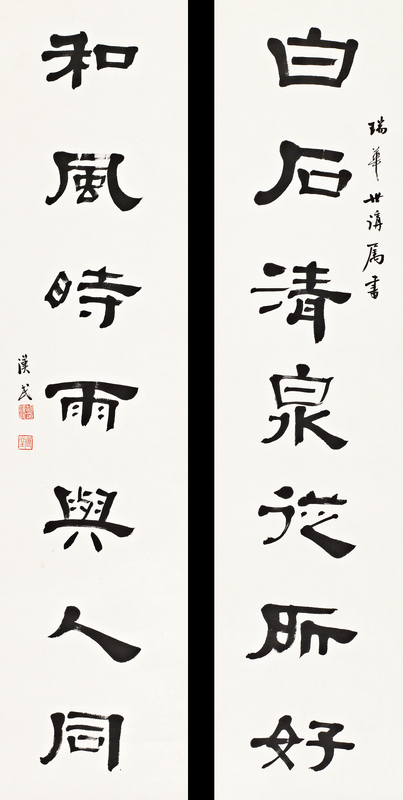 瑞華世講属書
白石清泉從所好
和風時雨與人同
漢民